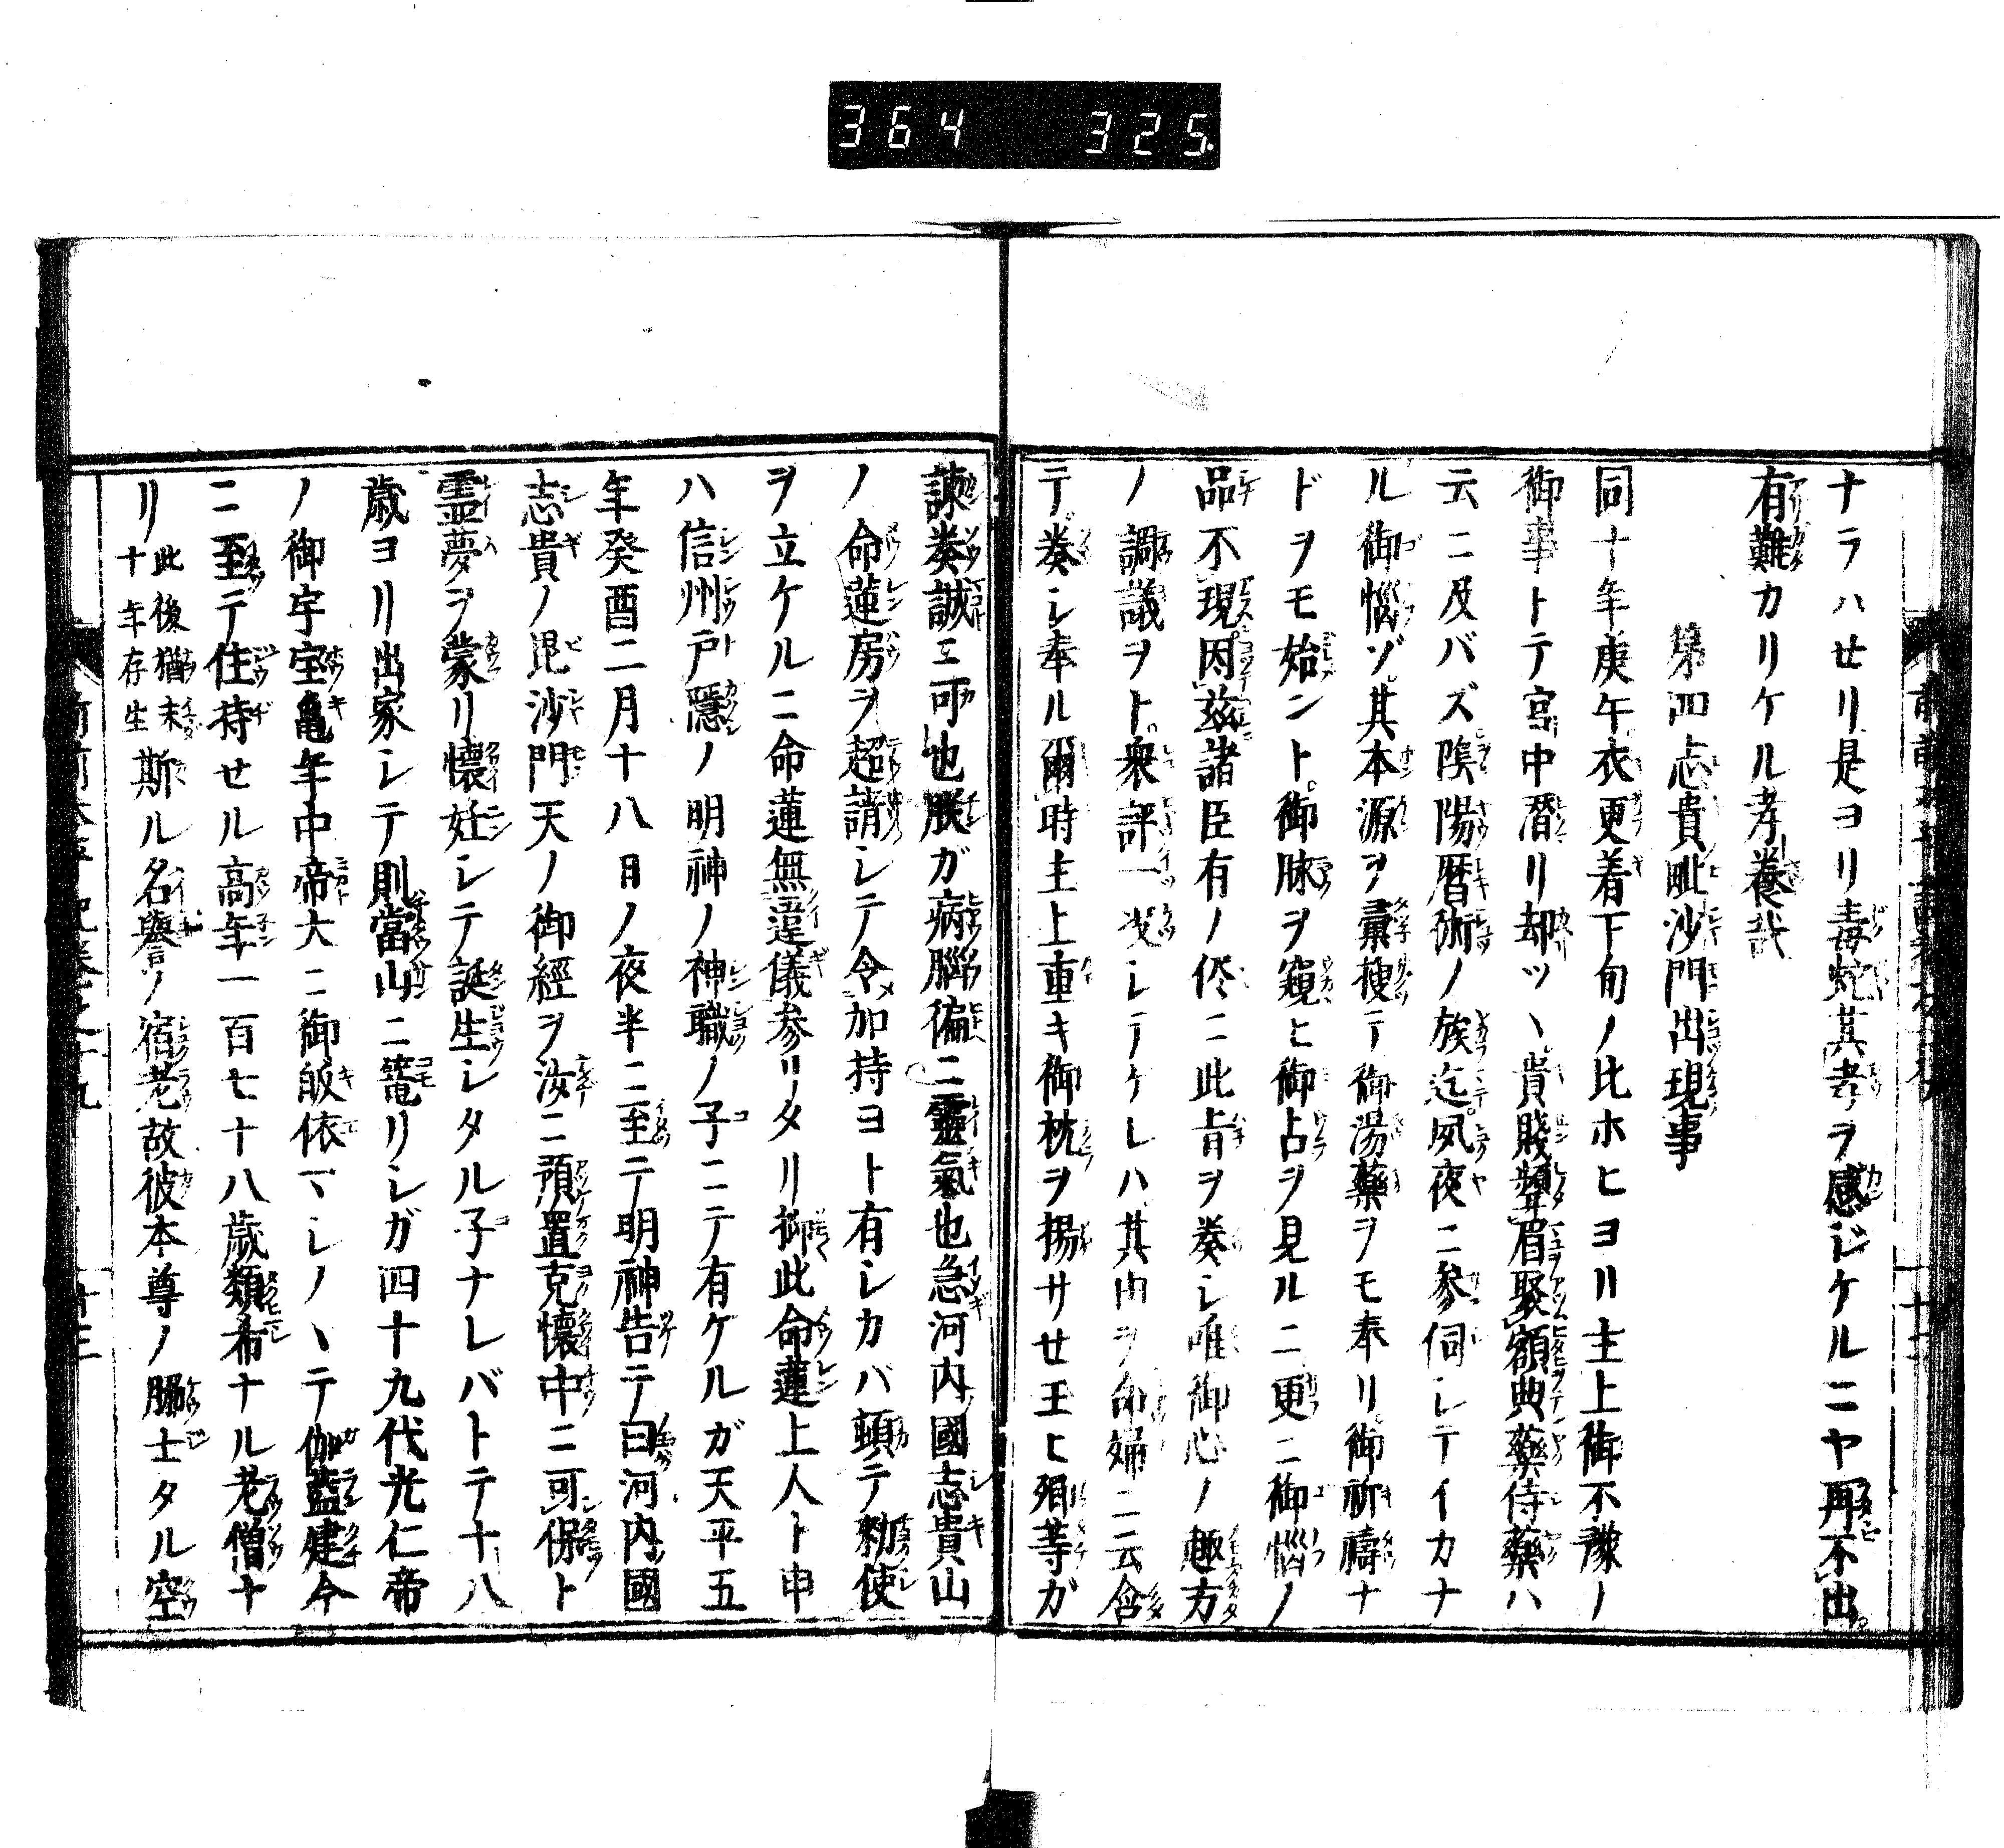 364 325
ナラハセリ是ヨリ毒蛇其孝ヲ感ジケルニヤ再不出
有難カリケル孝養哉
第四志貴毗沙門出現事
同十年庚午衣更着下旬ノ比ホヒヨリ主上御不豫ノ
御事トテ宮中潛リ却ツヽ貴賤顰眉聚額典藥侍藥ハ
云ニ及バズ陰陽暦術ノ族迄夙夜ニ参伺シテイカナ
ル御惱ゾ其本源ヲ彙搜テ御湯藥ヲモ奉リ御祈禱ナ
ドヲモ始ント御脉ヲ窺ヒ御占ヲ見ル二更ニ御惱ノ
品不現因茲諸臣有ノ侭ニ此旨ヲ奏シ唯御心ノ趣方
ノ調議ヲト衆評一决シテケレハ其由ヲ命婦ニ云含
テ奏シ奉ル爾時主上重キ御枕ヲ揚サセ王ヒ殞等ガ
諫奏誠ニ可也朕ガ病腦偏ニ靈氣也急河内國志貴山
ノ命蓮房ヲ超請シテ令加持ヨト有シカバ頓テ勅使
ヲ立ケルニ命蓮無違儀参リタリ抑此命蓮上人ト申
ハ信州戸隱ノ明神ノ神職ノ子ニテ有ケルガ天平五
年癸酉二月十八日ノ夜半ニ至テ明神告テ曰河内國
志貴ノ毘沙門天ノ御經ヲ汝ニ預置克懷中ニ可保ト
霊夢ヲ蒙リ懷妊シテ誕生シタル子ナレバトテ十八
歳ヨリ出家シテ則當山ニ篭リシガ四十九代光仁帝
ノ御宇宝亀年中帝大ニ御皈依マシノヽテ伽藍建今
ニ至テ住持セル高年一百七十八歳類希ナル老僧ナ
リ此後猶未十年存生斯ル名譽ノ宿老故彼本尊ノ臈士タル空